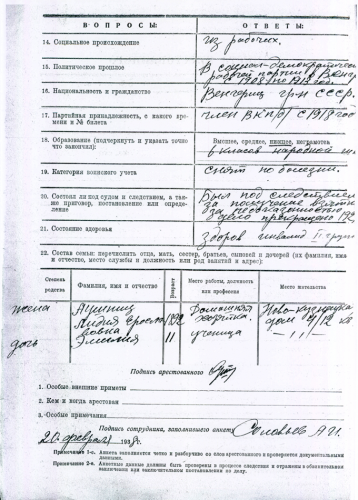 ВОПРОСЫ:
ОТВЕТЫ:
14. Социальное происхождение
из рабочих.
15. Политическое прошлое
В социал-демократическ
рабочей партии в Венгр
с 1908 по 1918 год
16. Национальность и гражданство
Венгерец гр-н СССР.
17. Партийная принадлежность, с какого времени и № билета
член ВКП/б/ с 1918 год
18. Образование (подчеркнуть и указать точно что закончил):
Высшее, среднее, низшее, неграмотен
6 класов народной
19. Категория воинского учета
Снят по болезни.
20. Состоял ли под судом и следствием, а также приговор, постановление или определение
Был под следствием
за получение взятки
за недоказанностью
дело прекращено 192
21. Состояние здоровья
Здоров инвалид II группы
22. Состав семьи: перечислить отца, мать, сестер, братьев, сыновей и дочерей (их фамилия, имя и отчество, место службы и должность или род занятий и адрес):
Степень родства
Фамилия, имя и отчество
Возраст
Место работы, должность или профессия
Место жительства
жена
Лидия
1892
Домашняя
Ново-Кузнецк
дом 4/12 кв
дочь
Эмилия
11
ученица
— 11 —
Подпись арестованного
1. Особые внешние приметы
2. Кем и когда арестован
3. Особые примечания
Подпись сотрудника, заполнившего анкету Соловьев А.И.
20 февраля 1938 г.
Примечание 1-е. Анкета заполняется четко и разборчиво со слов арестованного и проверяется документальными данными.
Примечание 2-е. Анкетные данные должны быть проверены в процессе следствия и отражены в обвинительном заключении или заключительном постановлении по делу.